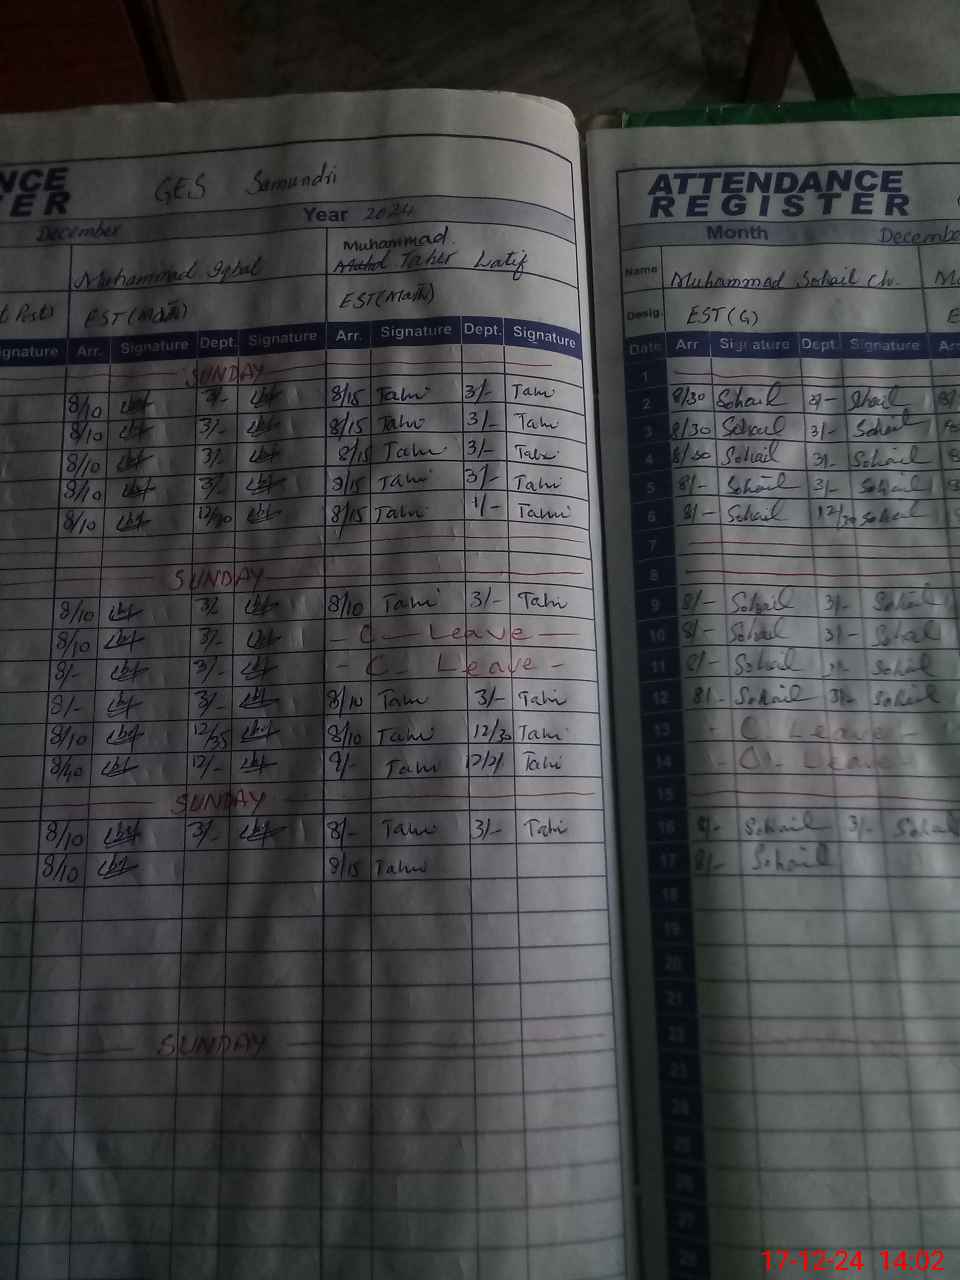 NCE
ER
GES Samundri
December
Year 2024
Muhammad Iqbal
Muhammad
Tahir Latif
t Post)
EST (Math)
EST (Math)
ignature Arr. Signature Dept. Signature Arr. Signature Dept. Signature
SUNDAY
8/10 3/- 8/15 Tahi 3/- Tahi
8/10 3/- 8/15 Tahi 3/- Tahi
8/10 3/- 8/15 Tahi 3/- Tahi
8/10 3/- 8/15 Tahi 3/- Tahi
8/10 12/30 8/15 Tahi 1/- Tahi
SUNDAY
8/10 3/ 8/10 Tahi 3/- Tahi
8/10 3/- - C - Leave -
8/- 3/- - C - Leave -
8/- 3/- 8/10 Tahi 3/- Tahi
8/10 12/35 8/10 Tahi 12/30 Tahi
8/10 12/- 9/- Tahi Tahi
SUNDAY
8/10 3/- 8/- Tahi 3/- Tahi
8/10 8/15 Tahi
SUNDAY
ATTENDANCE
REGISTER
Month December
Name Muhammad Sohail Ch.
Desig. EST (G)
Date Arr Signature Dept. Signature Arr
1
2 8/30 Sohail 3/- Sohail
3 8/30 Sohail 3/- Sohail
4 8/30 Sohail 3/- Sohail
5 8/- Sohail 3/- Sohail
6 8/- Sohail 12/30 Sohail
7
8
9 8/- Sohail 3/- Sohail
10 8/- Sohail 3/- Sohail
11 8/- Sohail 3/- Sohail
12 8/- Sohail 3/- Sohail
13 - C. Leave -
14 - C. Leave -
15
16 8/- Sohail 3/- Sohail
17 8/- Sohail
18
19
20
21
22
23
24
25
26
27
28
17-12-24 14:02